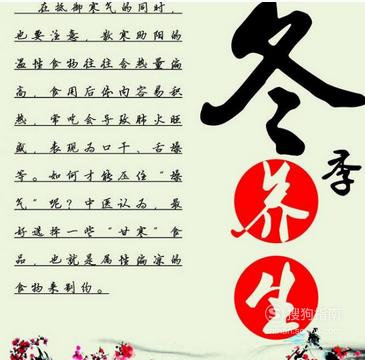 在抵御寒气的同时，
也要注意，散寒助阳的
温性食物往往含热量偏
高，食用后体内容易积
热，常吃会导致肺火旺
盛，表现为口干、舌燥
等。如何才能压住“燥
气”呢？中医认为，最
好选择一些“甘寒”食
品，也就是属性偏凉的
食物来制约。
冬
季
养
生
搜狗指南